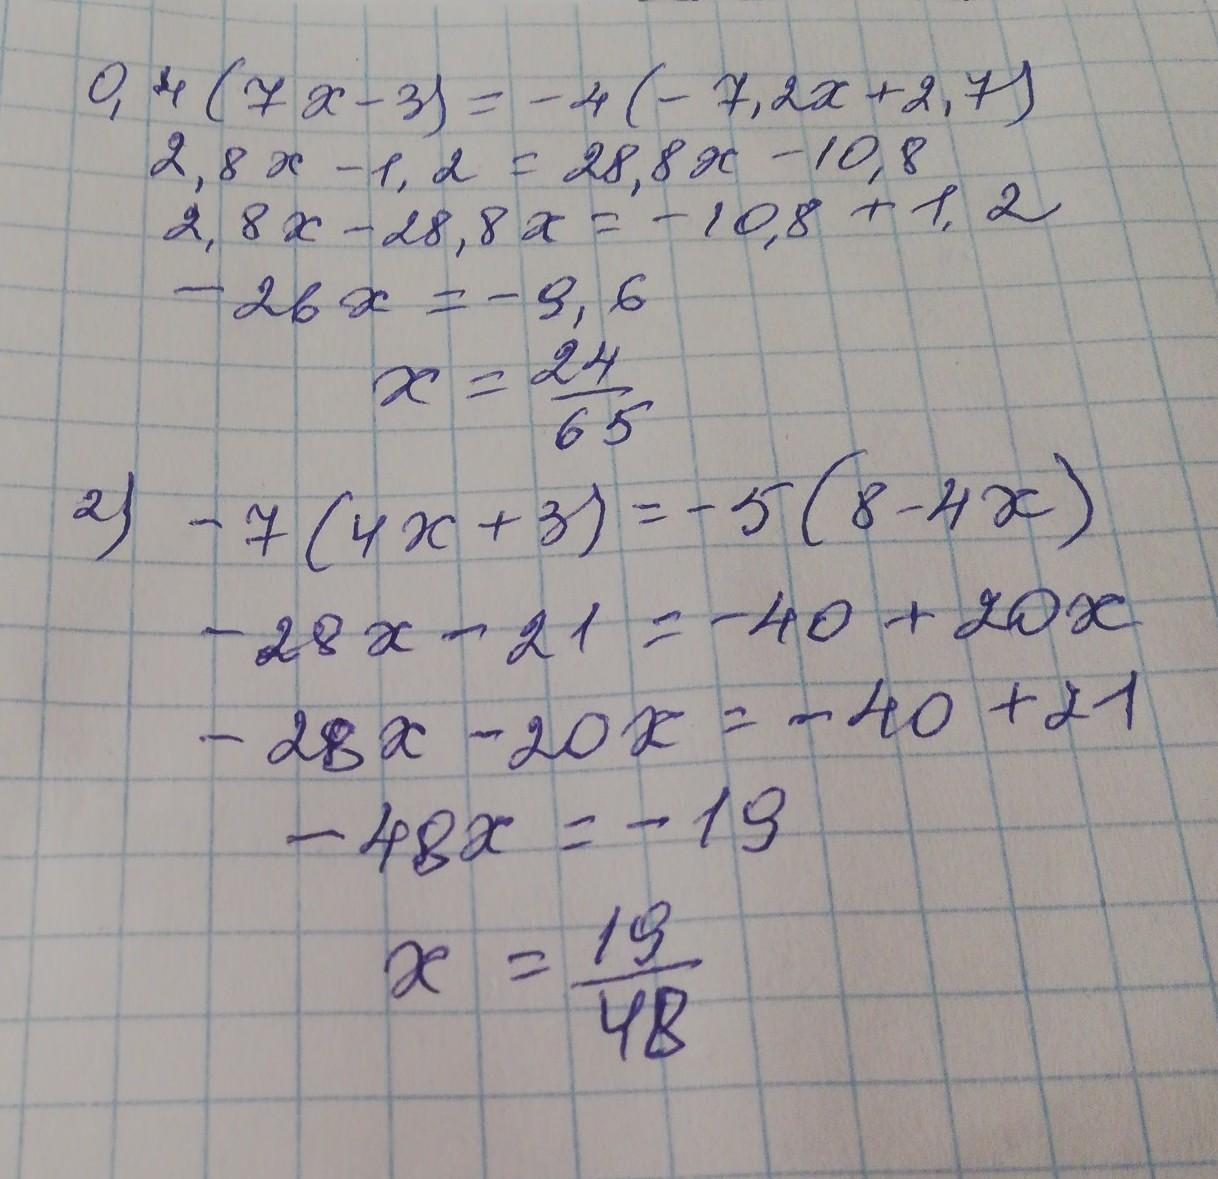 0,4(7x-3)=-4(-7,2x+2,7)
2,8x-1,2=28,8x-10,8
2,8x-28,8x=-10,8+1,2
-26x=-9,6
x=24/65
2) -7(4x+3)=-5(8-4x)
-28x-21=-40+20x
-28x-20x=-40+21
-48x=-19
x=19/48